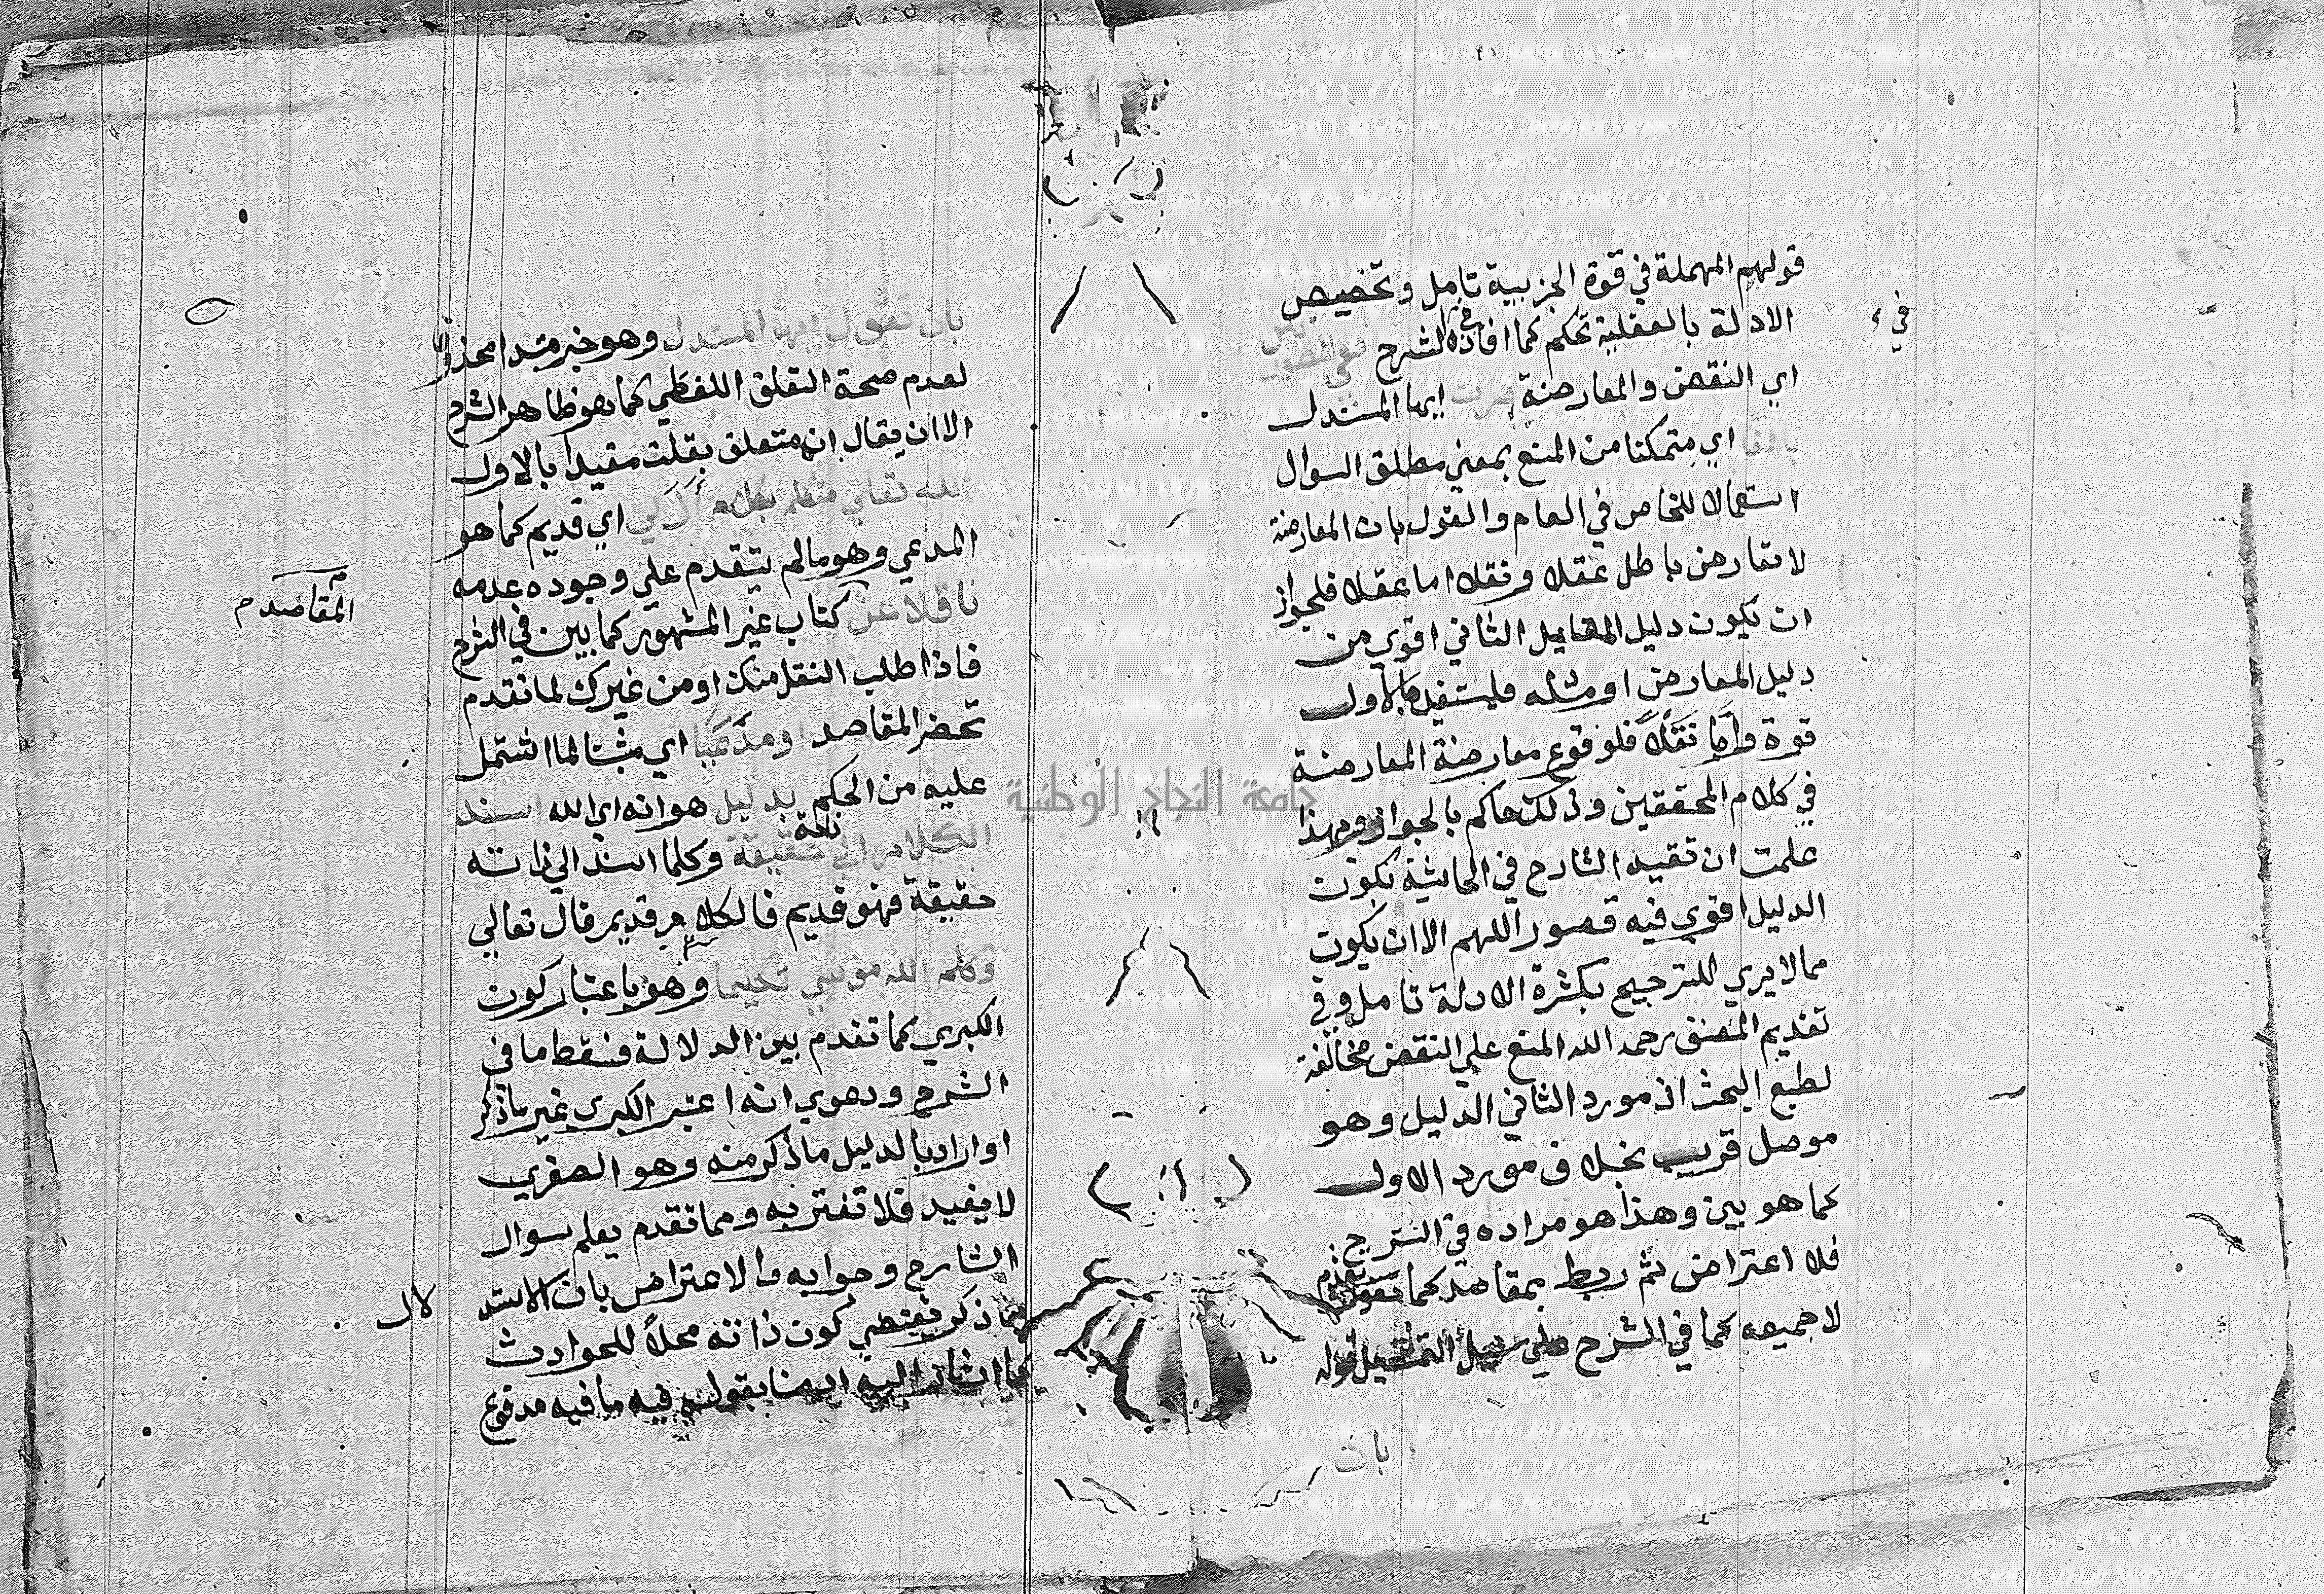 قولهم المهملة في قوة الجزبية تامل وتخصيص
الادلة بالعقلية تحكم كما افاده في الشرح ففي الصورتين
في
اي النقض والمعارضة صرت ايها المستدل
مانعا اي متمكنا من المنع بمعني مطلق السوال
استعمالا للخاص في العام والقول بان المعارضة
لا تعارض باطل عقلا ونقلا اما عقلا فلجواز
ان يكون دليل المقابل الثاني اقوي من
دليل المعارض او مثله فليستفيد بالاول
قوة واما نقلا فلوقوع معارضة المعارضة
في كلام المحققين وذلك حاكم بالجواز وبهذا
علمت ان تقييد الشارح في الحاشية بكون
الدليل اقوي فيه قصور اللهم الا ان يكون
ممالا يري للترجيح بكثرة الادلة تامل وفي
تقديم المصنف رحمه الله المنع علي النقض مخالفة
لطبع البحث اذ مورد الثاني الدليل وهو
موصل قريب بخلاف مورد الاول
كما هو بين وهذا هو مراده في الشرح
فلا اعتراض ثم ربط بمقاصد كما تقدم
لا جميعه كما في الشرح علي سبيل التمثيل قوله
بان
بان تقول ايها المستدل وهو خبر مبتدا محذوف
لعدم صحة التعلق اللفظي كما هو ظاهر الشرح
الا ان يقال انه متعلق بقلت مقيدا بالاول
الله تعالي متكلم بكلام ازلي اي قديم كما هو
المدعي وهو مالم يتقدم علي وجوده عدمه
ناقلا عن كتاب غير المشهور كما بين في الشرح
المقاصد م
فاذا طلب النقل منك او من غيرك لما تقدم
تحضر المقاصد او مدعيا اي مثبتا لما اشتمل
عليه من الحكم بدليل هو انه اي الله اسند
الكلام الي ذاته حقيقة وكلما اسند الي ذاته
حقيقة فهو قديم فالكلام قديم قال تعالي
وكلم الله موسي تكليما وهو باعتبار كون
الكبري كما تقدم بين الدلالة فسقط ما في
الشرح ودعوي انه اعتبر الكبري غير ما ذكر
او اراد بالدليل ما ذكر منه وهو الصغري
لا يفيد فلا تغتر به ومما تقدم يعلم سوال
الشارح وجوابه والاعتراض بان الاستد
لال
بما ذكر يقتضي كون ذاته محلا للحوادث
كما اشار اليه ايضا بقوله فيه ما فيه مدفوع
جامعة النجاح الوطنية